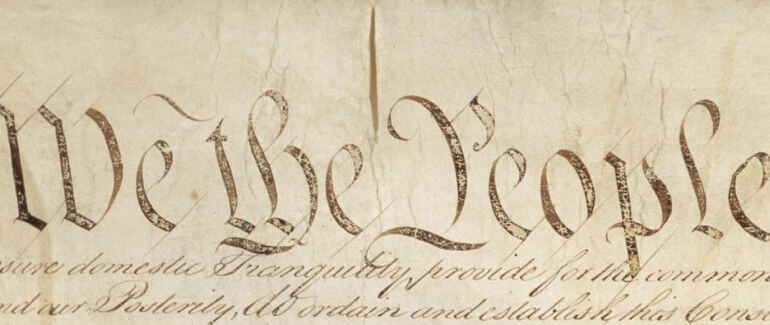 We the People
nsure domestic Tranquility, provide for the common
nd our Posterity, do ordain and establish this Cons